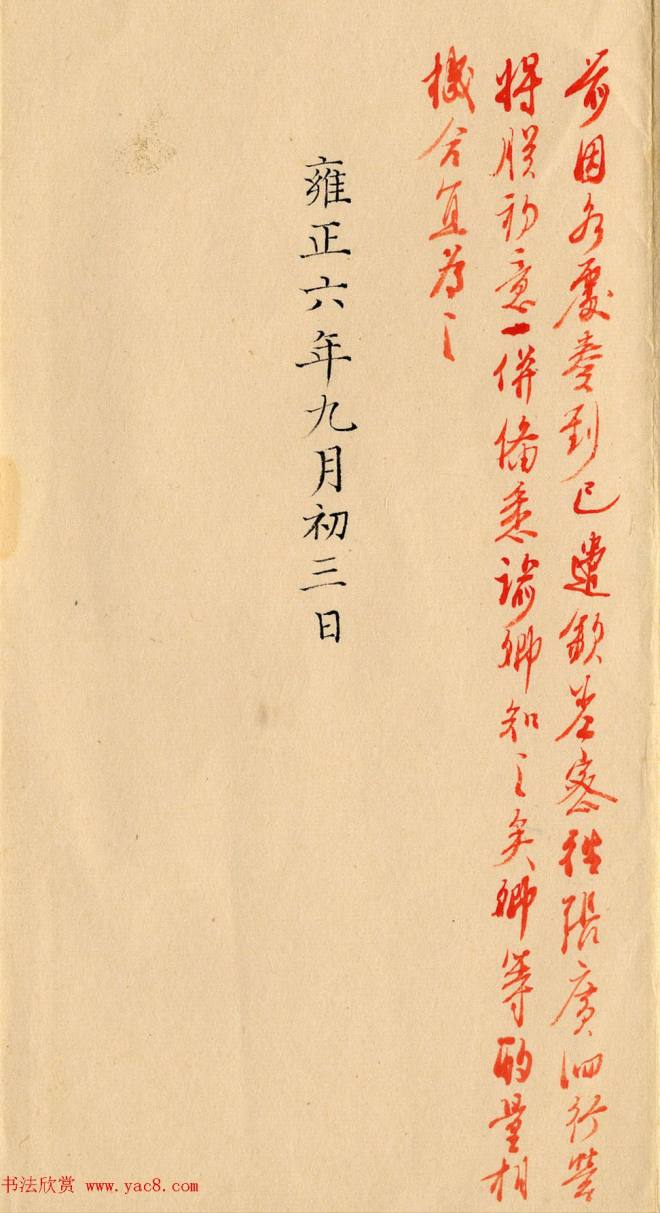 前因各處奏到已遣欽差密往張廣泗行營
將朕初意一併俻悉諭卿知之矣卿等酌量相
機合宜為之
雍正六年九月初三日
书法欣赏 www.yac8.com